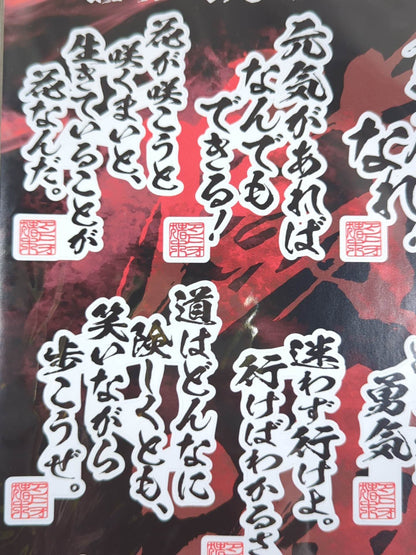 元気があれば
なんでも
できる!
花が咲こうと
咲くまいと、
生きていることが
花なんだ。
なれ
勇気
迷わず行けよ。
行けばわかるさ
道はどんなに
険しくとも、
笑いながら
歩こうぜ。